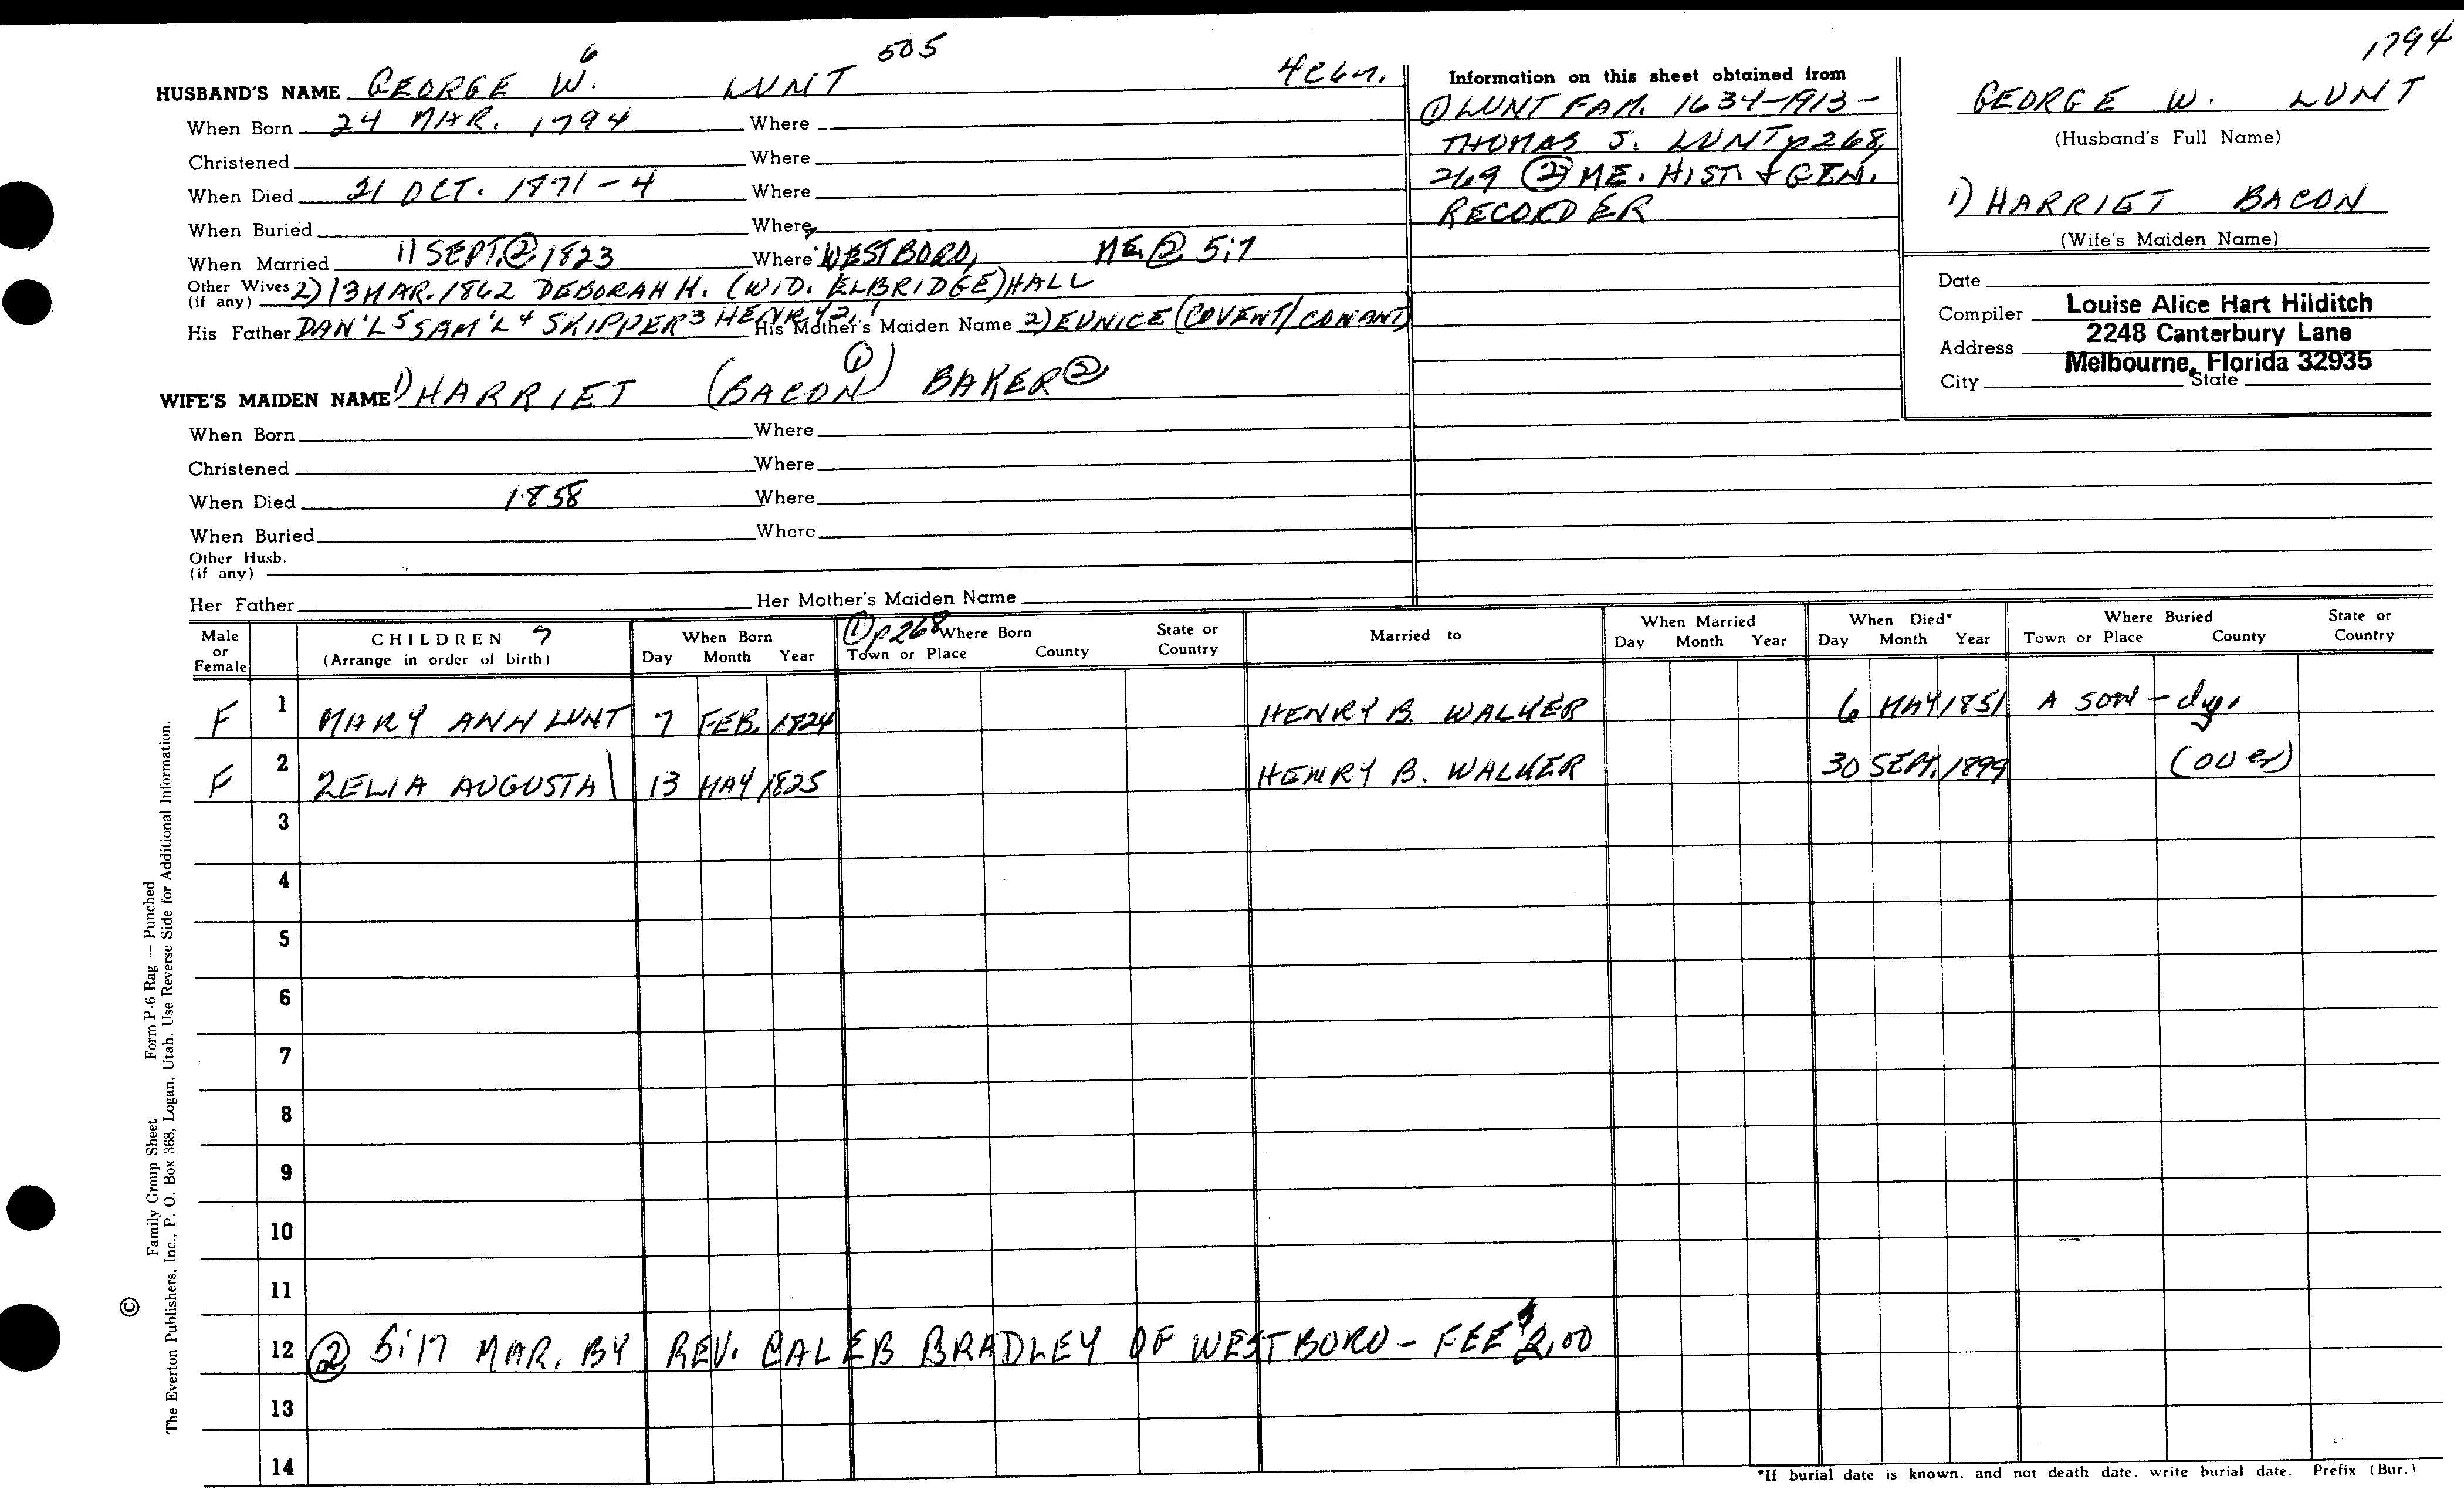 1794
6 505
HUSBAND'S NAME GEORGE W. LUNT 4 Chn.
When Born 24 MAR. 1794 Where
Christened Where
When Died 21 OCT. 1871-4 Where
When Buried Where
When Married 1) SEPT. ② 1823 Where WESTBORO, ME. ② 5:7
Other Wives (if any) 2) 13 MAR. 1862 DEBORAH H. (WID. ELBRIDGE) HALL
His Father DAN'L 5 SAM'L 4 SKIPPER 3 HENRY 2, 1 His Mother's Maiden Name 2) EUNICE (COVENT/CONANT)
WIFE'S MAIDEN NAME 1) HARRIET (BACON ①) BAKER ②
When Born Where
Christened Where
When Died 1858 Where
When Buried Where
Other Husb.
(if any)
Her Father Her Mother's Maiden Name
Information on this sheet obtained from
① LUNT FAM. 1634-1913-
THOMAS S. LUNT p 268,
269 ② ME. HIST. & GEN.
RECORDER
GEORGE W. LUNT
(Husband's Full Name)
1) HARRIET BACON
(Wife's Maiden Name)
Date
Compiler Louise Alice Hart Hilditch
Address 2248 Canterbury Lane
Melbourne, Florida 32935
City State
Male or Female
CHILDREN
(Arrange in order of birth)
When Born
Day Month Year
① p 268 Where Born
Town or Place County State or Country
Married to
When Married
Day Month Year
When Died*
Day Month Year
Where Buried
Town or Place County State or Country
F 1 MARY ANN LUNT 7 FEB. 1824 HENRY B. WALKER 6 MAY 1851 A SON - dy.
F 2 ZELIA AUGUSTA 13 MAY 1825 HENRY B. WALKER 30 SEPT. 1899 (over)
3
4
5
6
7
8
9
10
11
12 ② 5:17 MAR. BY REV. CALEB BRADLEY OF WESTBORO - FEE $2.00
13
14
*If burial date is known, and not death date, write burial date. Prefix (Bur.)
© Family Group Sheet Form P-6 Rag — Punched
The Everton Publishers, Inc., P. O. Box 368, Logan, Utah. Use Reverse Side for Additional Information.